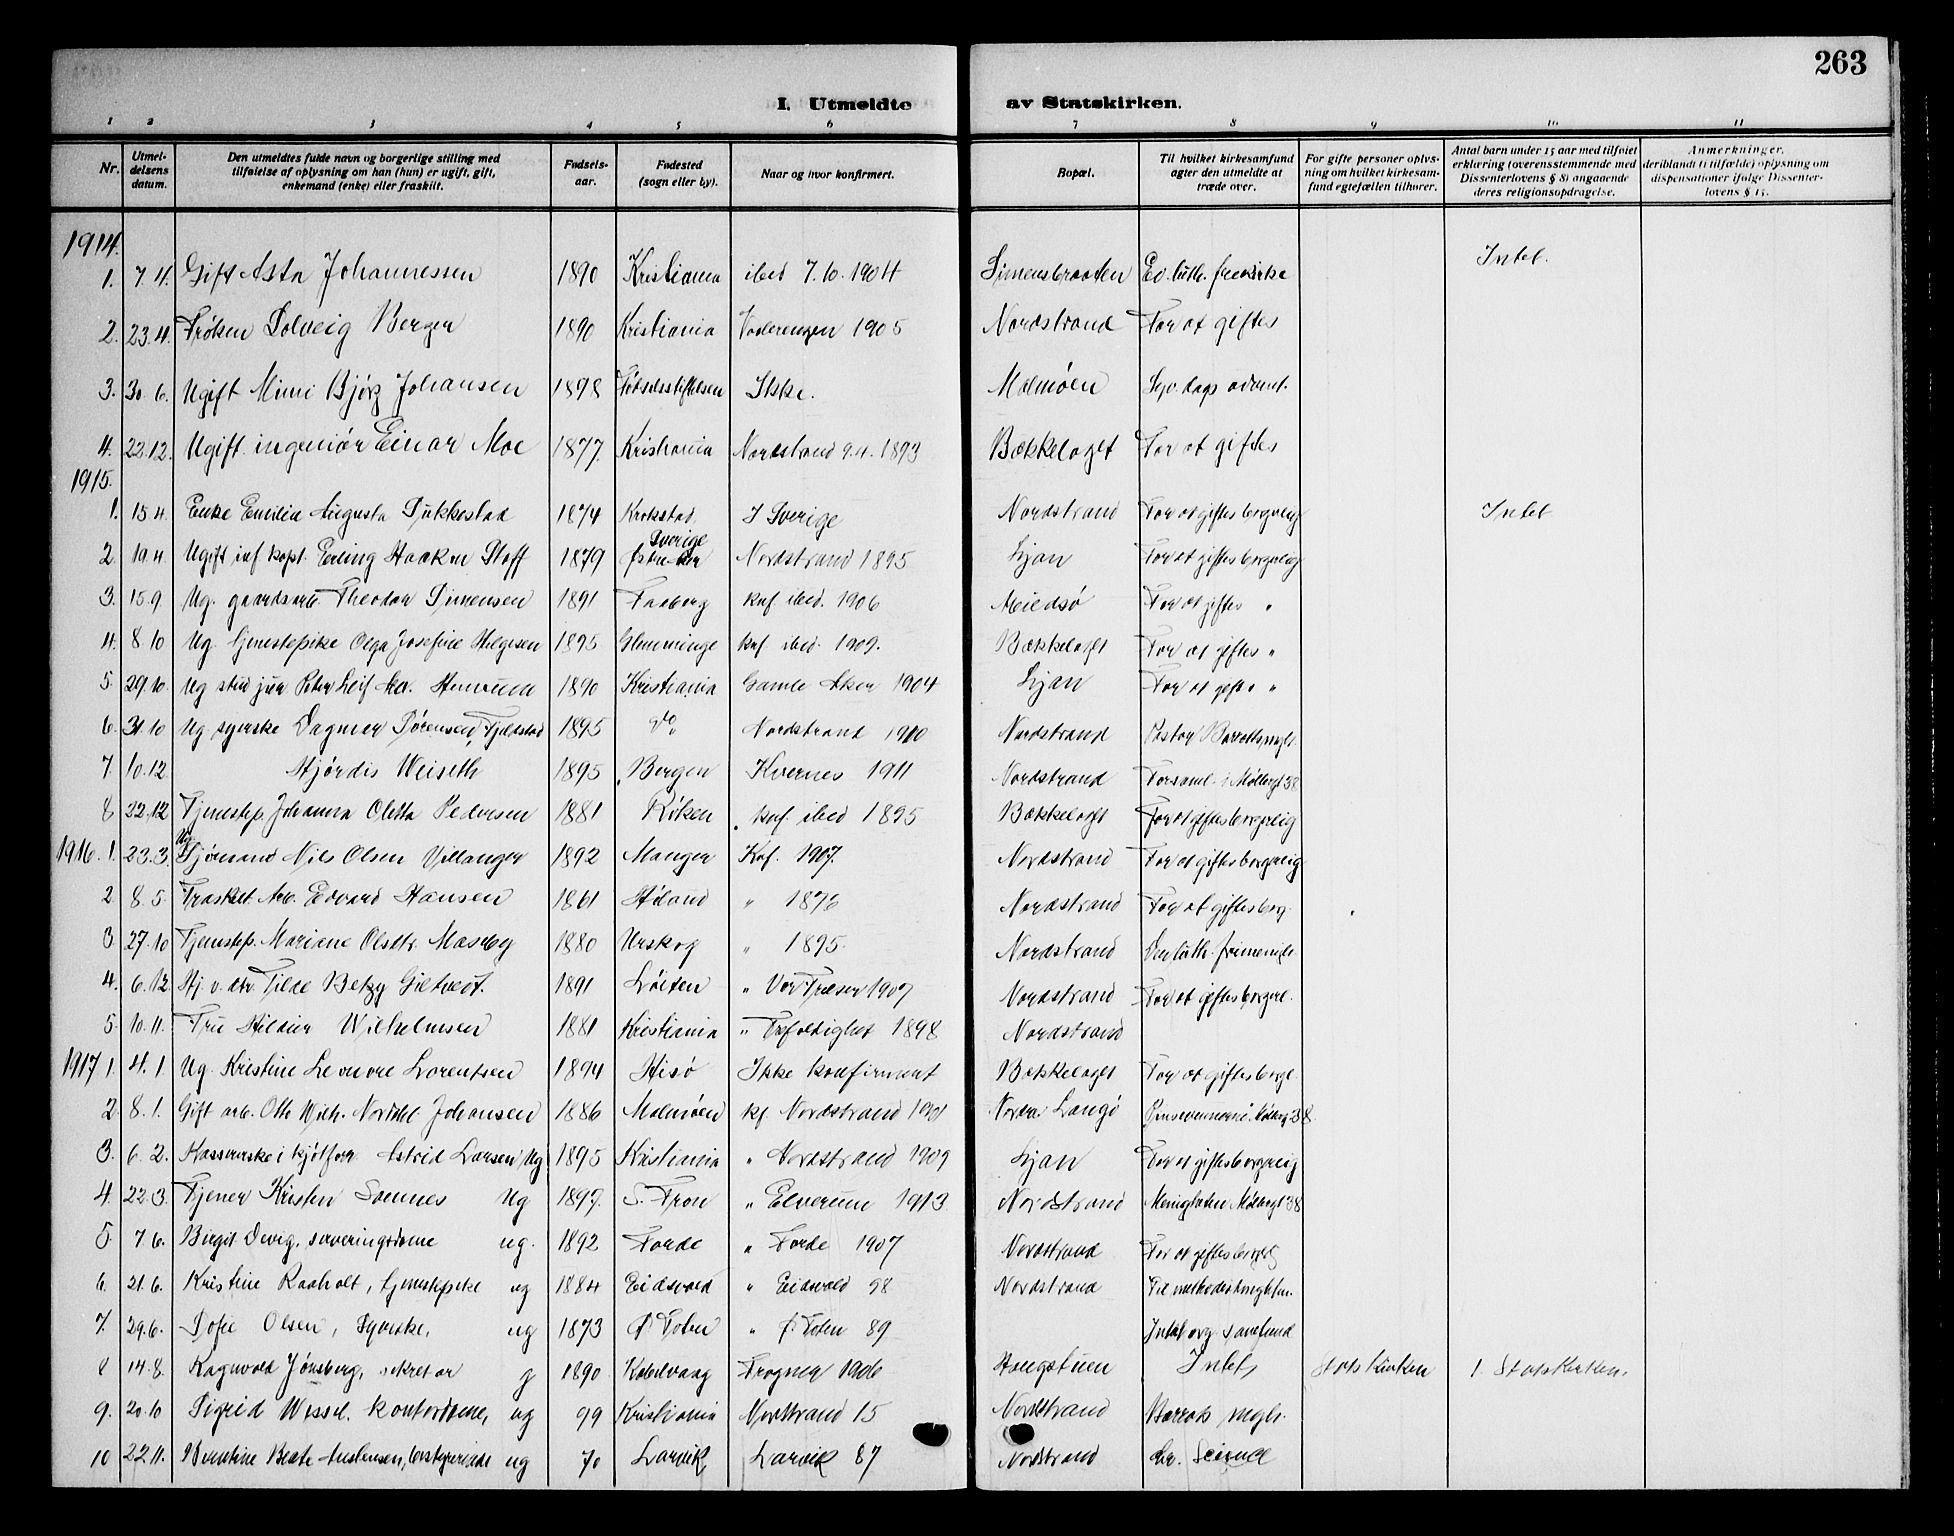 263
I. Utmeldte av Statskirken.
1 2 3 4 5 6 7 8 9 10 11
Nr. | Utmeldelsens datum. | Den utmeldtes fulde navn og borgerlige stilling med tilføielse af oplysning om han (hun) er ugift, gift, enkemand (enke) eller fraskilt. | Fødselsaar. | Fødested (sogn eller by). | Naar og hvor konfirmert. | Bopæl. | Til hvilket kirkesamfund agter den utmeldte at træde over. | For gifte personer oplysning om hvilket kirkesamfund egtefællen tilhører. | Antal barn under 15 aar med tilføiet erklæring (overensstemmende med Dissenterlovens § 8) angaaende deres religionsopdragelse. | Anmerkninger, deriblandt (i tilfælde) oplysning om dispensationer ifølge Dissenterlovens § 15.
1914.
1. 7.4. Gift Asta Johannessen 1890 Kristiania ibed 7.10.1904 Simensbraaten Ev. luth. frikirke Intet.
2. 23.4. Frøken Solveig Berger 1890 Kristiania Vaalerengen 1905 Nordstrand For at giftes
3. 30.6. Ugift Mimi Bjørg Johansen 1898 Fødselsstiftelsen Ikke. Malmøen Syv. dags advent.
4. 22.12. Ugift ingeniør Einar Moe 1877. Kristiania Nordstrand 9.4.1893 Bækkelaget For at giftes
1915.
1. 15.4. Enke Emilia Augusta 1874 Krokstad Sverige I Sverige Nordstrand For at giftes borgerlig Intet
2. 19.4. Ugift inf. kapt. Erling Haakon 1879 Nordstrand 1895 Ljan For at giftes borgerlig
3. 15.9 Ug. gaardsarb. Theodor Simensen 1891 Faaberg knf. ibed. 1906 For at giftes "
4. 8.10 Ug. tjenestepike Olga Josefine Helgesen 1895 Glemminge knf. ibed. 1909. Bækkelaget For at giftes "
5. 29.10. Ug stud jur Peter Leif 1890 Kristiania Gamle Aker 1904 Ljan For at gift. "
6. 31.10 Ug. syerske Dagmar Sørensen, Fjeldstad 1895 do Nordstrand 1910 Nordstrand Pastor Barratts mght.
7. 10.12. Hjørdis Weiseth 1895 Bergen Kvernes 1911 Nordstrand Forsaml. i Møllergt 38
8 22.12 Tjenestep. Johanna Oletta Pedersen 1881 Røken knf. ibed 1895 Bækkelaget For at giftes borgerlig
1916. 1. 23.3. Ug. Sjømand Nils Olsen Villanger 1892 Manger Knf. 1907. Nordstrand For at giftes borgerlig
2. 8.5. Fraskilt Arb. Edvard Hansen 1861 Høland " 1876 Nordstrand For at giftes borg.
3. 27.10 Tjenestep. Mariane Olsdtr. 1880 Urskog " 1895. Nordstrand Den luth. frimenigh.
4. 6.12. Tilde Betzy 1891 Løiten " Vor Frelser 1907 Nordstrand For at giftes borgerl.
5. 10.11. Fru Wilhelmsen 1881 Kristiania " Trefoldighet 1898 Nordstrand
1917 1. 4.1. Ug. Kristine Leonore Lorentsen 1894 Hisø Ikke konfirmert Bækkelaget For at giftes borgl.
2 8.1. Gift arb. Otto Wilh. Johansen 1886 Malmøen kf. Nordstrand 1901 Nordre Langø Pinsevennerne i Møllergt 38.
3. 6.2. Kasserske i kjøtforr. Astrid Larsen Ug 1895 Kristiania " Nordstrand 1909 Ljan For at giftes borgerlig
4. 22.3. Tjener Kristen Ug 1897. S. Fron " Elverum 1913 Nordstrand Menigheten Møllergt 38
5. 7.6. Birgit Devig, serveringsdame ug. 1892 Førde " Førde 1907 Nordstrand For at giftes borgerl
6. 21.6. Kristine Raaholt, tjenestepike ug 1884 Eidsvold " Eidsvold 98 Nordstrand Til methodistmenigheten.
7. 29.6. Sofie Olsen, Syerske, ug 1873 Ø. Toten " Ø. Toten 89 Intet org. samfund
8 14.8. Ragnvald Jønsberg, sekretær g 1890 Frogner 1906 Haugstuen Intet, Statskirken 1 Statskirken.
9. 20.10 Sigrid Wessel. kontordame, ug 99 Kristiania Nordstrand 15 Nordstrand Barrats mgh.
10 22.11. Beate ug 70 Larvik Larvik 87 Nordstrand Chr. Science